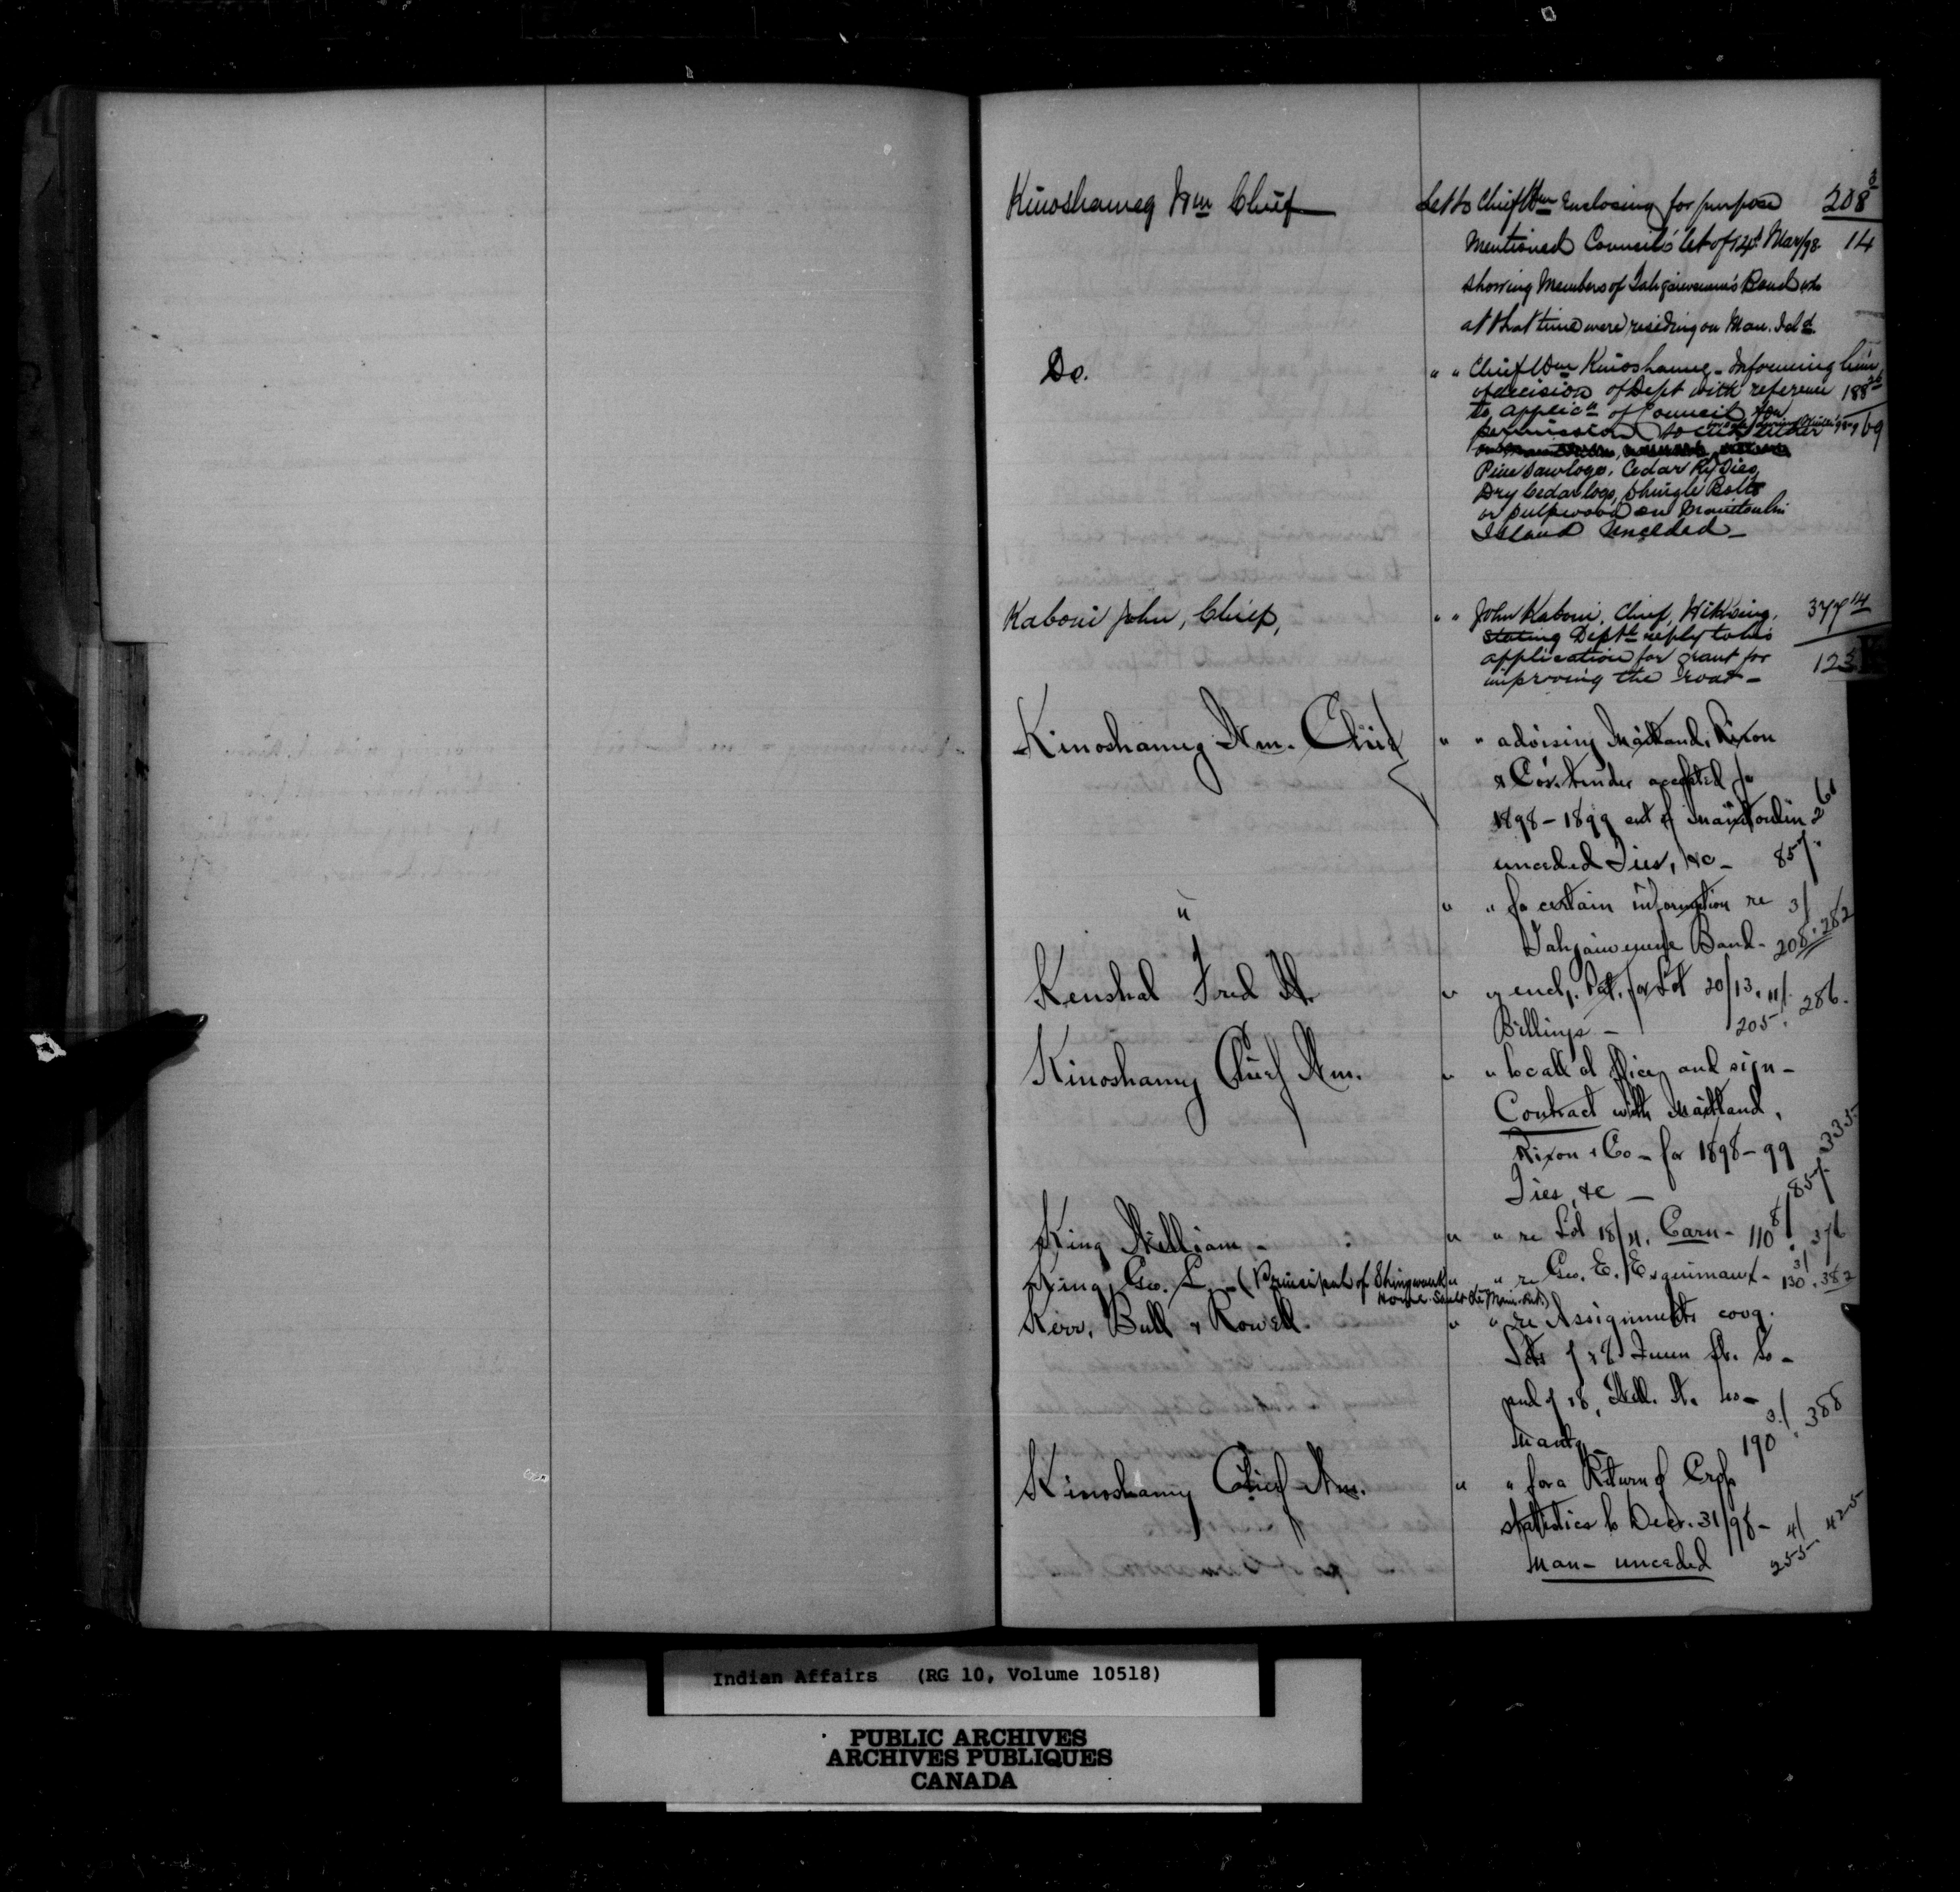 Kinoshameg Wm Chief Let to Chief Wm Enclosing for purpose 208 3
Mentioned Council's let of 14th Mar/98 14
showing Members of Tahgaiwenene's Band who
at that time were residing on Man. Isld
Do. " " Chief Wm Kinoshameg - Informing him
of decision of Dept with reference 188
to applicn of Council for
permission to cut either 69
Pine Sawlogs, Cedar Ry Ties,
Dry Cedar logs, Shingle Bolts
or pulpwood on Manitoulin
Island Unceded -
Kaboni John, Chief, " " John Kaboni, Chief, Wikwing, 377 14
stating Dept's reply to his
application for grant for 123
improving the road -
Kinoshameg Wm. Chief " " advising Maitland, Rixon
& Co's. tender accepted for
1898-1899 cut of Manitoulin 261
unceded Ties, &c - 857.
" " " for certain information re 3/
Tahgaiwenene Band - 208. 282
Kenshal Fred W. " " encl. Pat. for Lot 20/13, 11/. 286.
Billings - 205.
Kinoshameg Chief Wm. " " to call at office and sign -
Contract with Maitland,
Rixon & Co - for 1898-99 335
Ties, &c - 857.
King William - " " re Lot 18/11, Carn - 110 8/. 376
King, Geo. L. - (Principal of Shingwauk " " re Geo. E. Esquimaux - 130 3/. 382
Home. Sault Ste. Marie. Ont.)
Kerr, Bull & Rowell. " " re Assignments covg.
Lots 7 & 8 Queen St. So -
and 7 & 8, Well. St. No -
Manitg - 190 3/. 388
Kinoshameg Chief Wm. " " for a Return of Crop
statistics to Decr. 31/98 - 4/ 425
Man - unceded 255
Indian Affairs (RG 10, Volume 10518)
PUBLIC ARCHIVES
ARCHIVES PUBLIQUES
CANADA